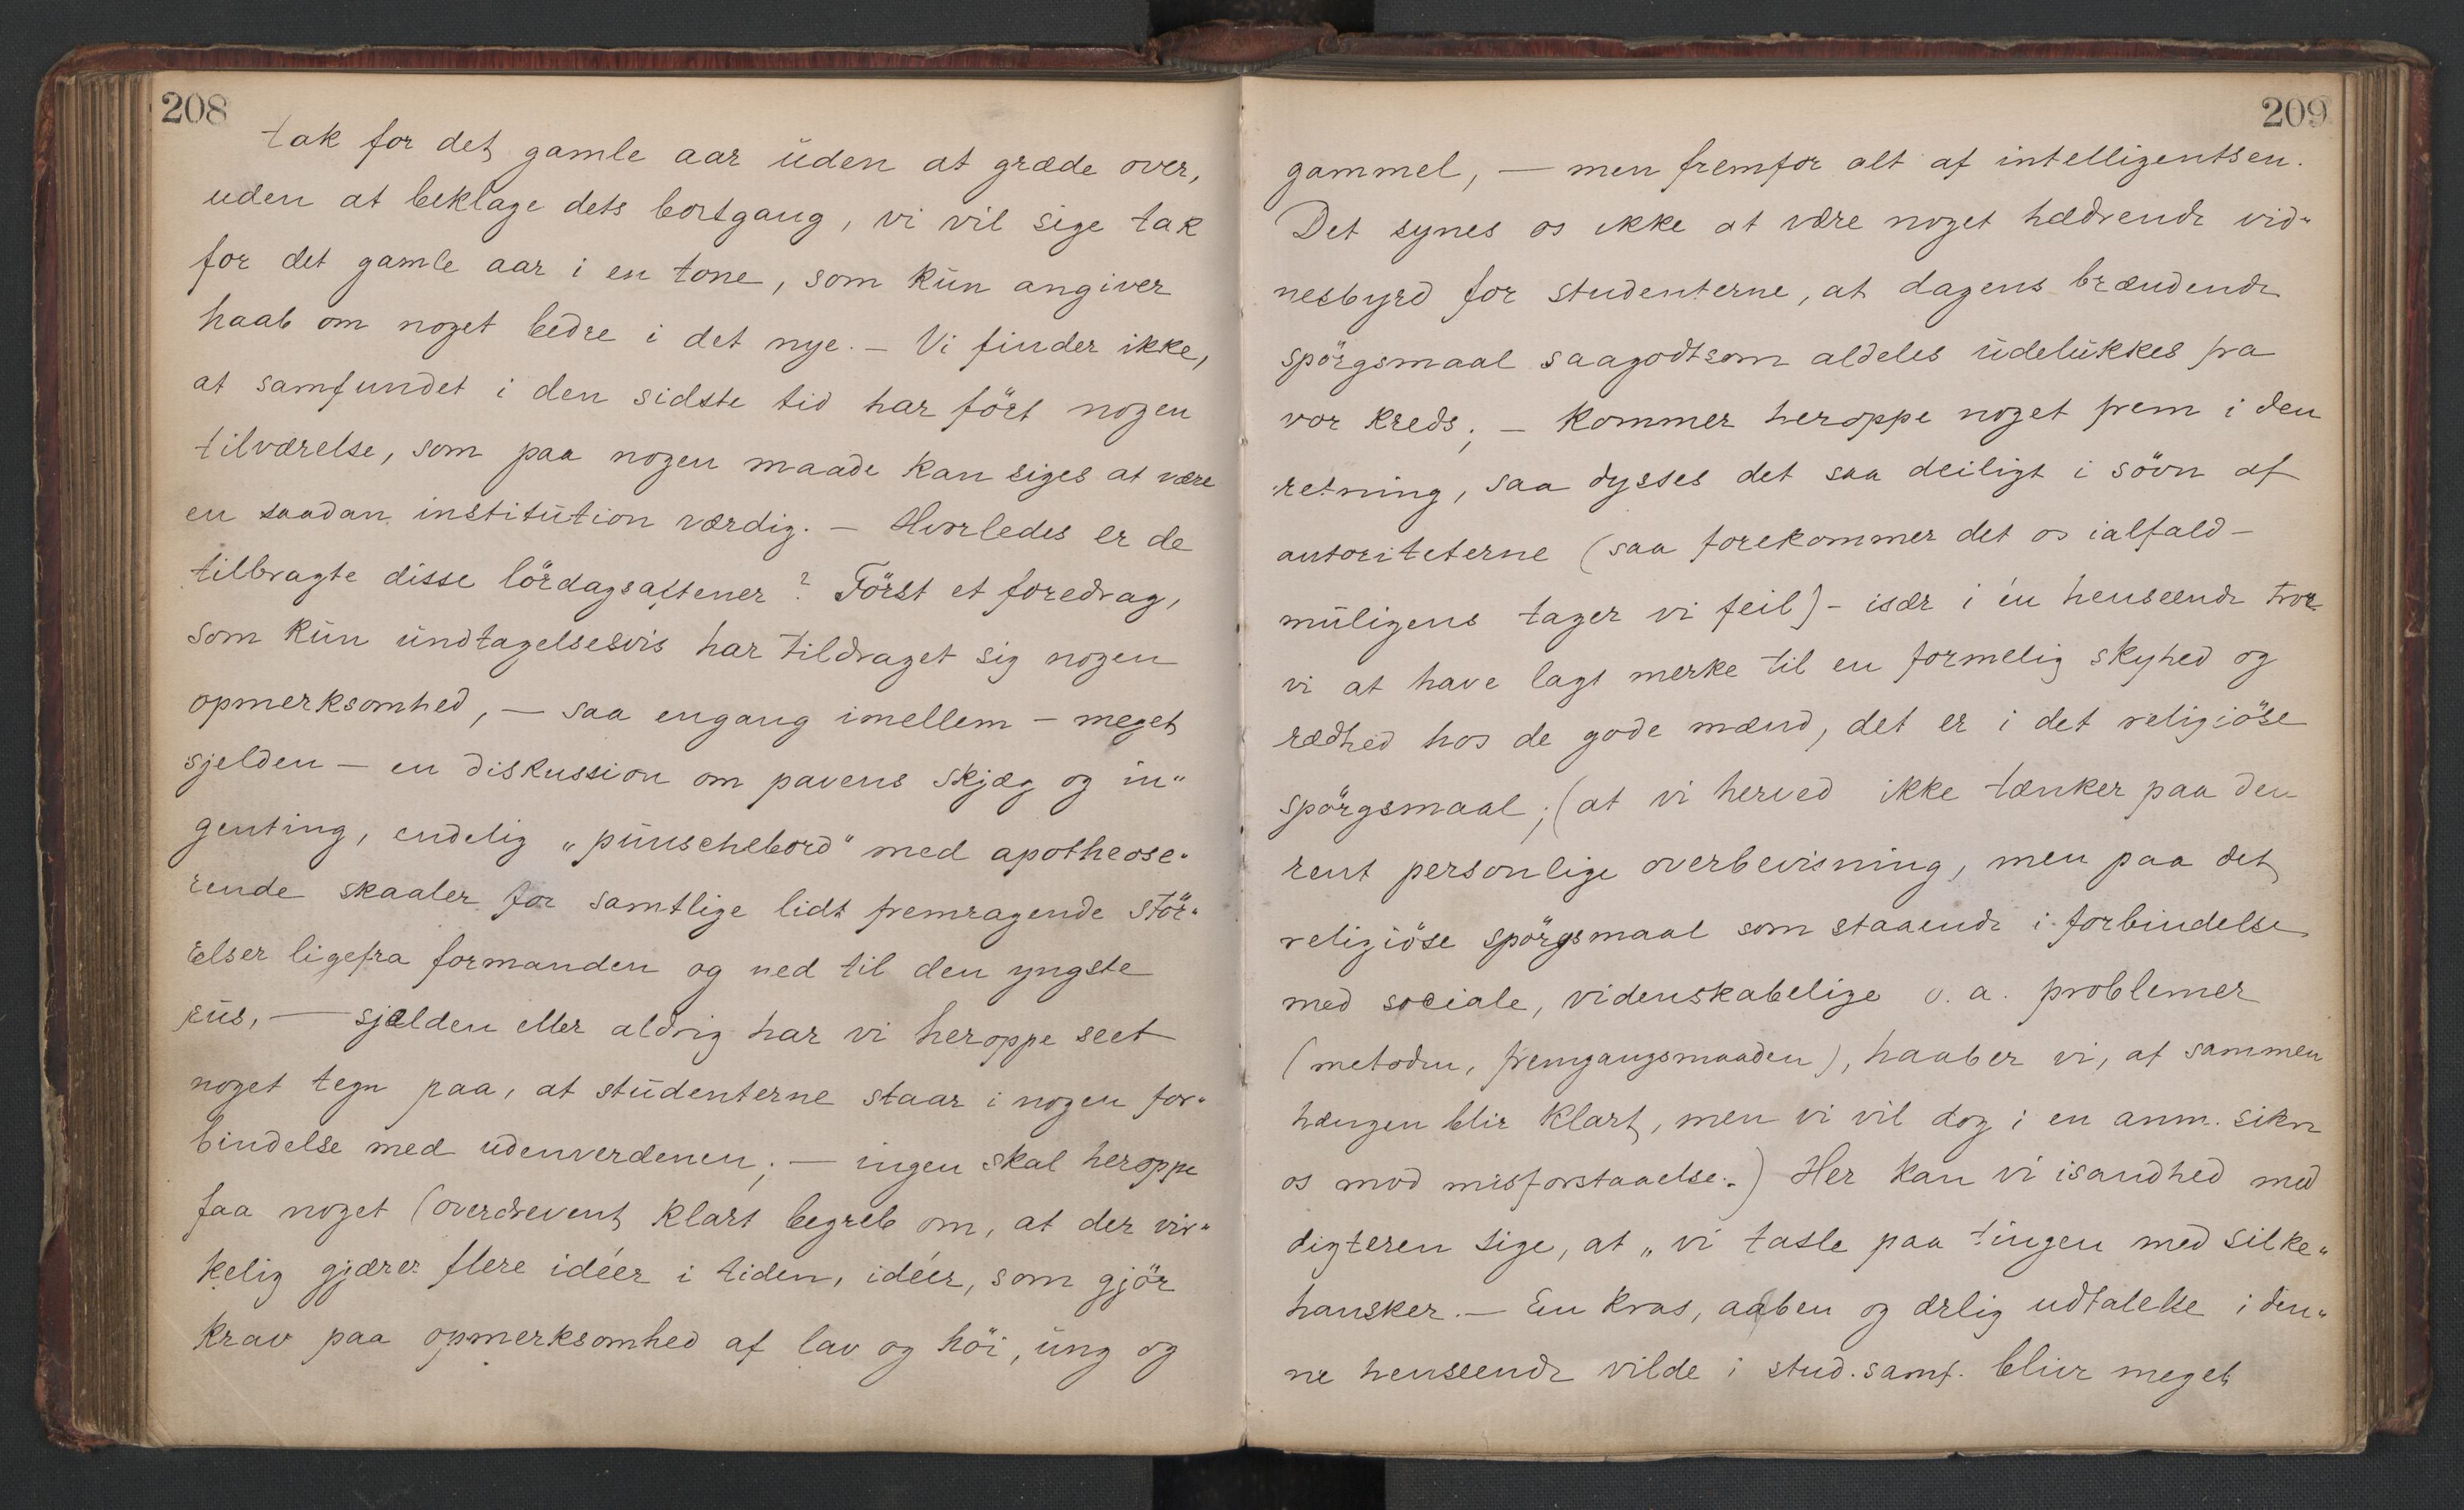 208
tak for det gamle aar uden at græde over,
uden at beklage dets bortgang, vi vil sige tak
for det gamle aar i en tone, som kun angiver
haab om noget bedre i det nye. — Vi finder ikke,
at samfundet i den sidste tid har fört nogen
tilværelse, som paa nogen maade kan siges at være
en saadan institution værdig. — Hvorledes er de
tilbragte disse lördagsaftener? Först et foredrag,
som kun undtagelsesvis har tildraget sig nogen
opmerksomhed, — saa engang imellem — meget
sjelden — en diskussion om pavens skjæg og in„
genting, endelig „punschebord" med apotheose„
rende skaaler for samtlige lidt fremragende stör„
relser ligefra formanden og ned til den yngste
rus, — sjælden eller aldrig har vi heroppe seet
noget tegn paa, at studenterne staar i nogen for„
bindelse med udenverdenen; — ingen skal heroppe
faa noget (overdrevent klart begreb om, at der vir„
kelig gjærer flere idéer i tiden, idéer, som gjör
krav paa opmerksomhed af lav og höi, ung og
209
gammel, — men fremfor alt af intelligentsen.
Det synes os ikke at være noget hædrende vid„
nesbyrd for studenterne, at dagens brændende
spörgsmaal saagodtsom aldeles udelukkes fra
vor kreds; — kommer heroppe noget frem i den
retning, saa dysses det saa deiligt i sövn af
autoriteterne (saa forekommer det os ialfald —
muligens tager vi feil) — især i én henseende tror
vi at have lagt merke til en formelig skyhed og
rædhed hos de gode mænd, det er i det religiöse
spörgsmaal; (at vi herved ikke tænker paa den
rent personlige overbevisning, men paa det
religiöse spörgsmaal som staaende i forbindelse
med sociale, videnskabelige o. a. problemer
(metoden, fremgangsmaaden), haaber vi, af sammen
hængen blir klart, men vi vil dog i en anm. sikre
os mod misforstaaelse.) Her kan vi isandhed med
digteren sige, at „vi tasle paa tingen med silke„
hansker. — En kras, aaben og ærlig udtalelse i den„
ne henseende vilde i stud. samf. blive meget